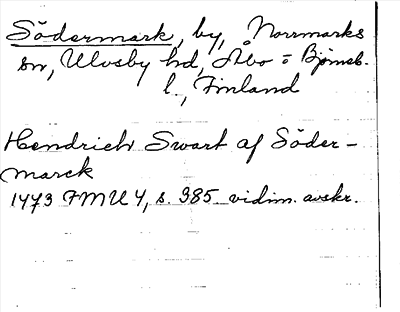 Södermark, by, Norrmarks
sn, Ulvsby hd, Åbo = Björneb.
l., Finland
Hendrich Swart af Söder-
marck
1473 FMU 4, s. 385 vidim. avskr.